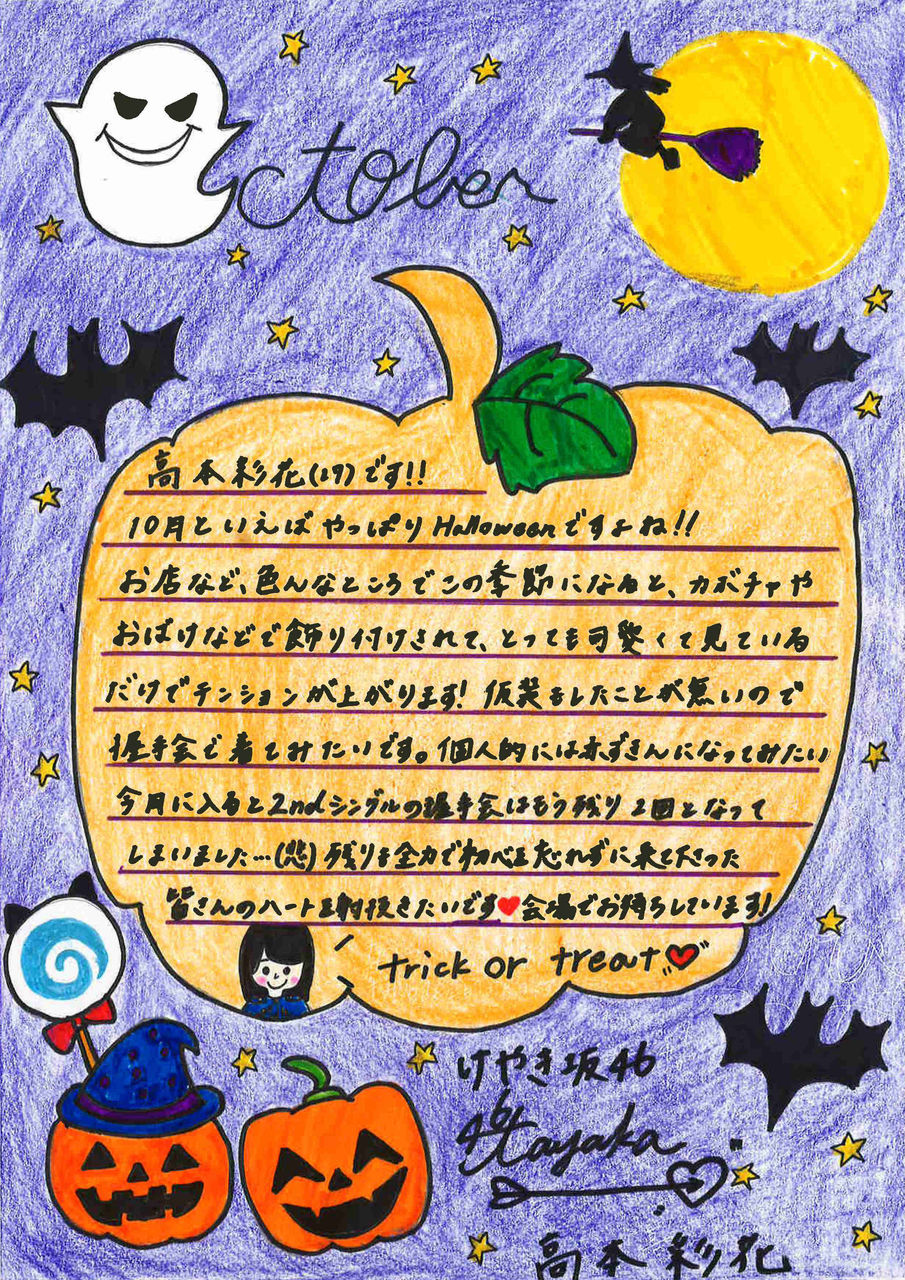 October
高本彩花(19)です!!
10月といえばやっぱりHalloweenですよね!!
お店など、色んなところでこの季節になると、カボチャや
おばけなどで飾り付けされて、とっても可愛くて見ている
だけでテンションが上がります! 仮装をしたことが無いので
握手会で着てみたいです。個人的には赤ずきんになってみたい
今月に入ると2ndシングルの握手会はもう残り2回となって
しまいました…(悲) 残りを全力で初心を忘れずに来て下さった
皆さんのハートを射抜きたいです♥会場でお待ちしています!
trick or treat♥
けやき坂46
46 Ayaka
高本彩花